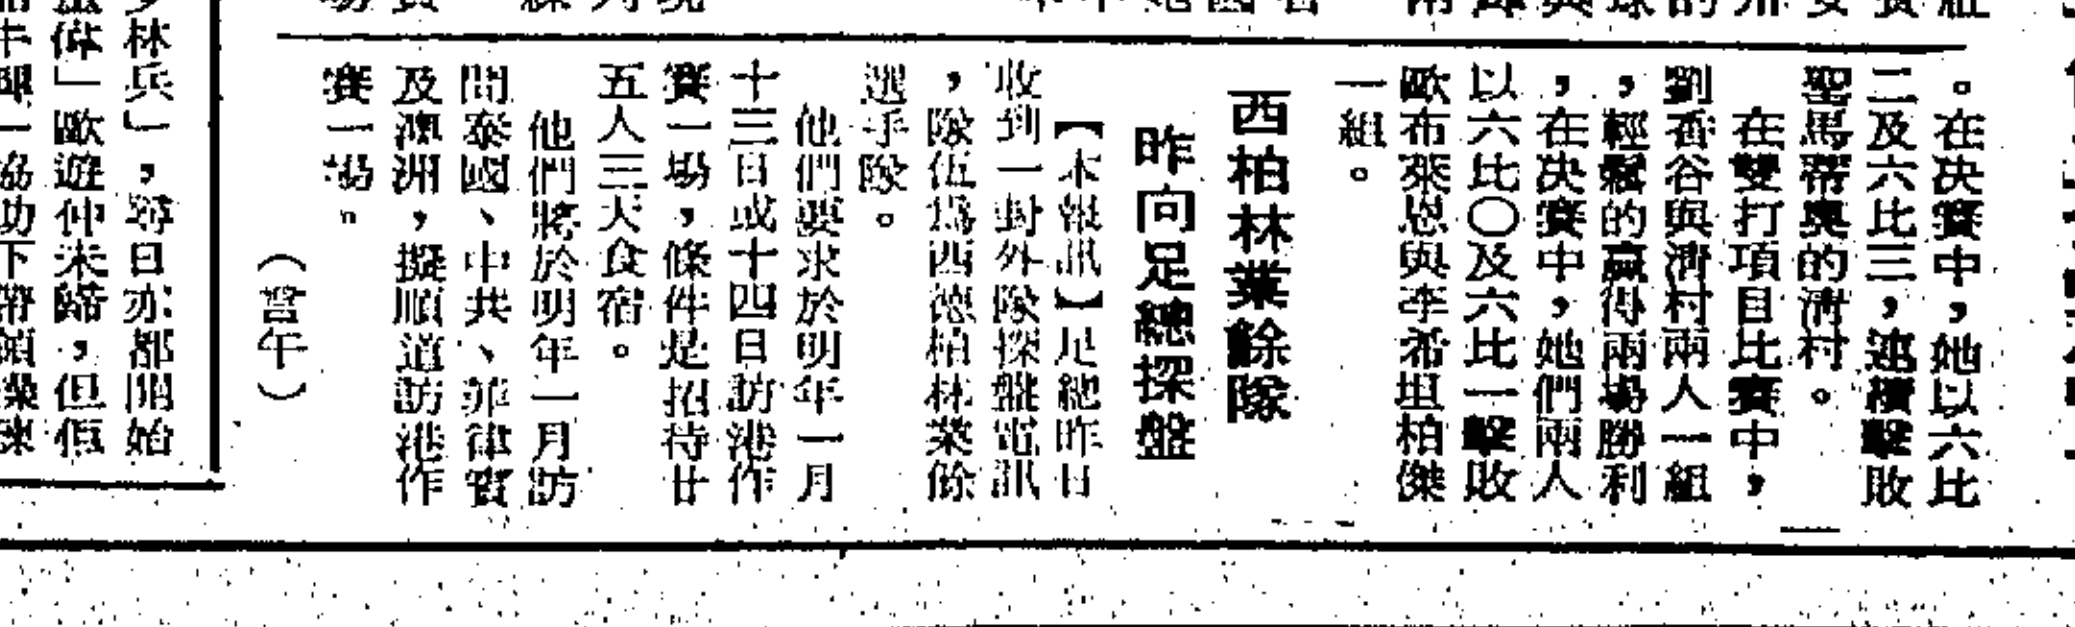 。在決賽中,她以六比
二及六比三,連續擊敗
聖馬蒂奧的清村。
在雙打項目比賽中,
劉香谷與清村兩人一組
,輕鬆的贏得兩場勝利
,在決賽中,她們兩人
以六比〇及六比一擊敗
歐布萊恩與李希坦柏傑
一組。
西柏林業餘隊
昨向足總探盤
【本報訊】足總昨日
收到一封外隊探盤電訊
,隊伍爲西德柏林業餘
選手隊。
他們要求於明年一月
十三日或十四日訪港作
賽一場,條件是招待廿
五人三天食宿。
他們將於明年一月訪
問泰國、中共、菲律賓
及澳洲,擬順道訪港作
賽一場。
(當午)
林兵」,尋日亦都開始
偉」歐遊仲未歸,但佢
牛輝一協助下帶領操練